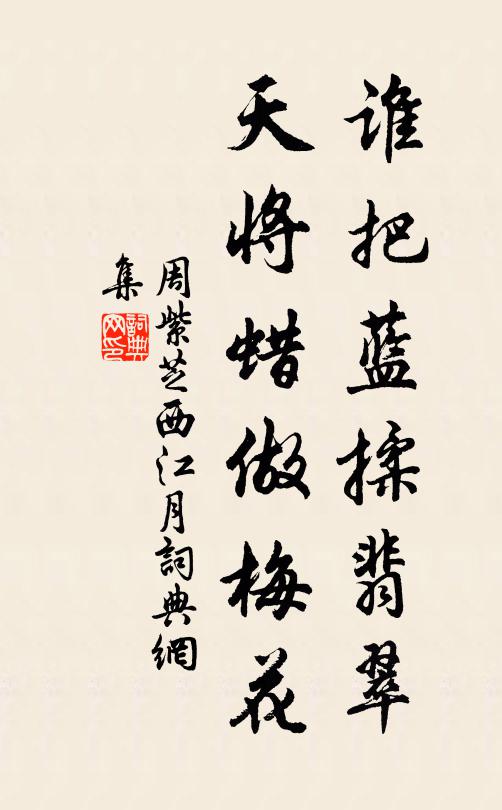 谁把蓝揉翡翠
天将蜡做梅花
周紫芝西江月詞典網
集
詞典
网印